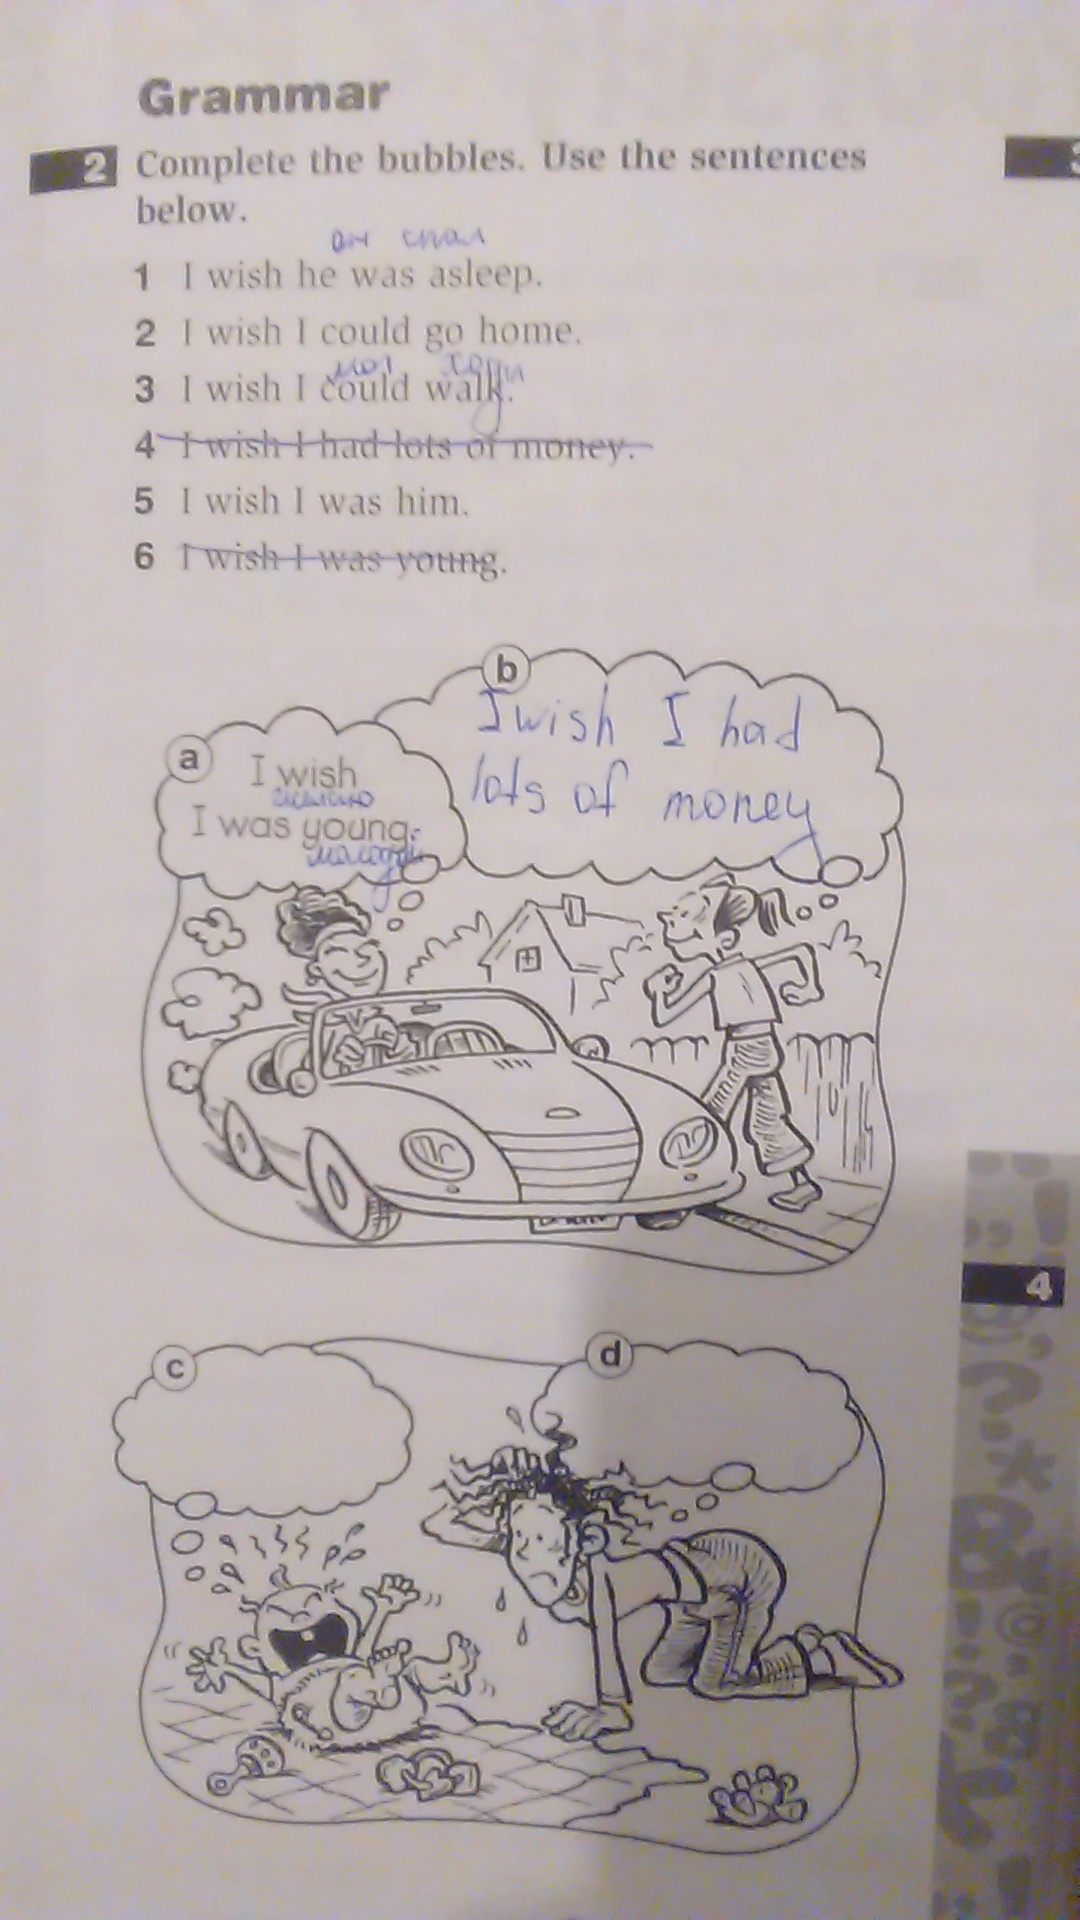 Grammar
2 Complete the bubbles. Use the sentences
below.
он спал
1 I wish he was asleep.
2 I wish I could go home.
мог ходи
3 I wish I could walk.
4 I wish I had lots of money.
5 I wish I was him.
6 I wish I was young.
b
I wish I had
lots of money
a
I wish
I was young.
4
c
d